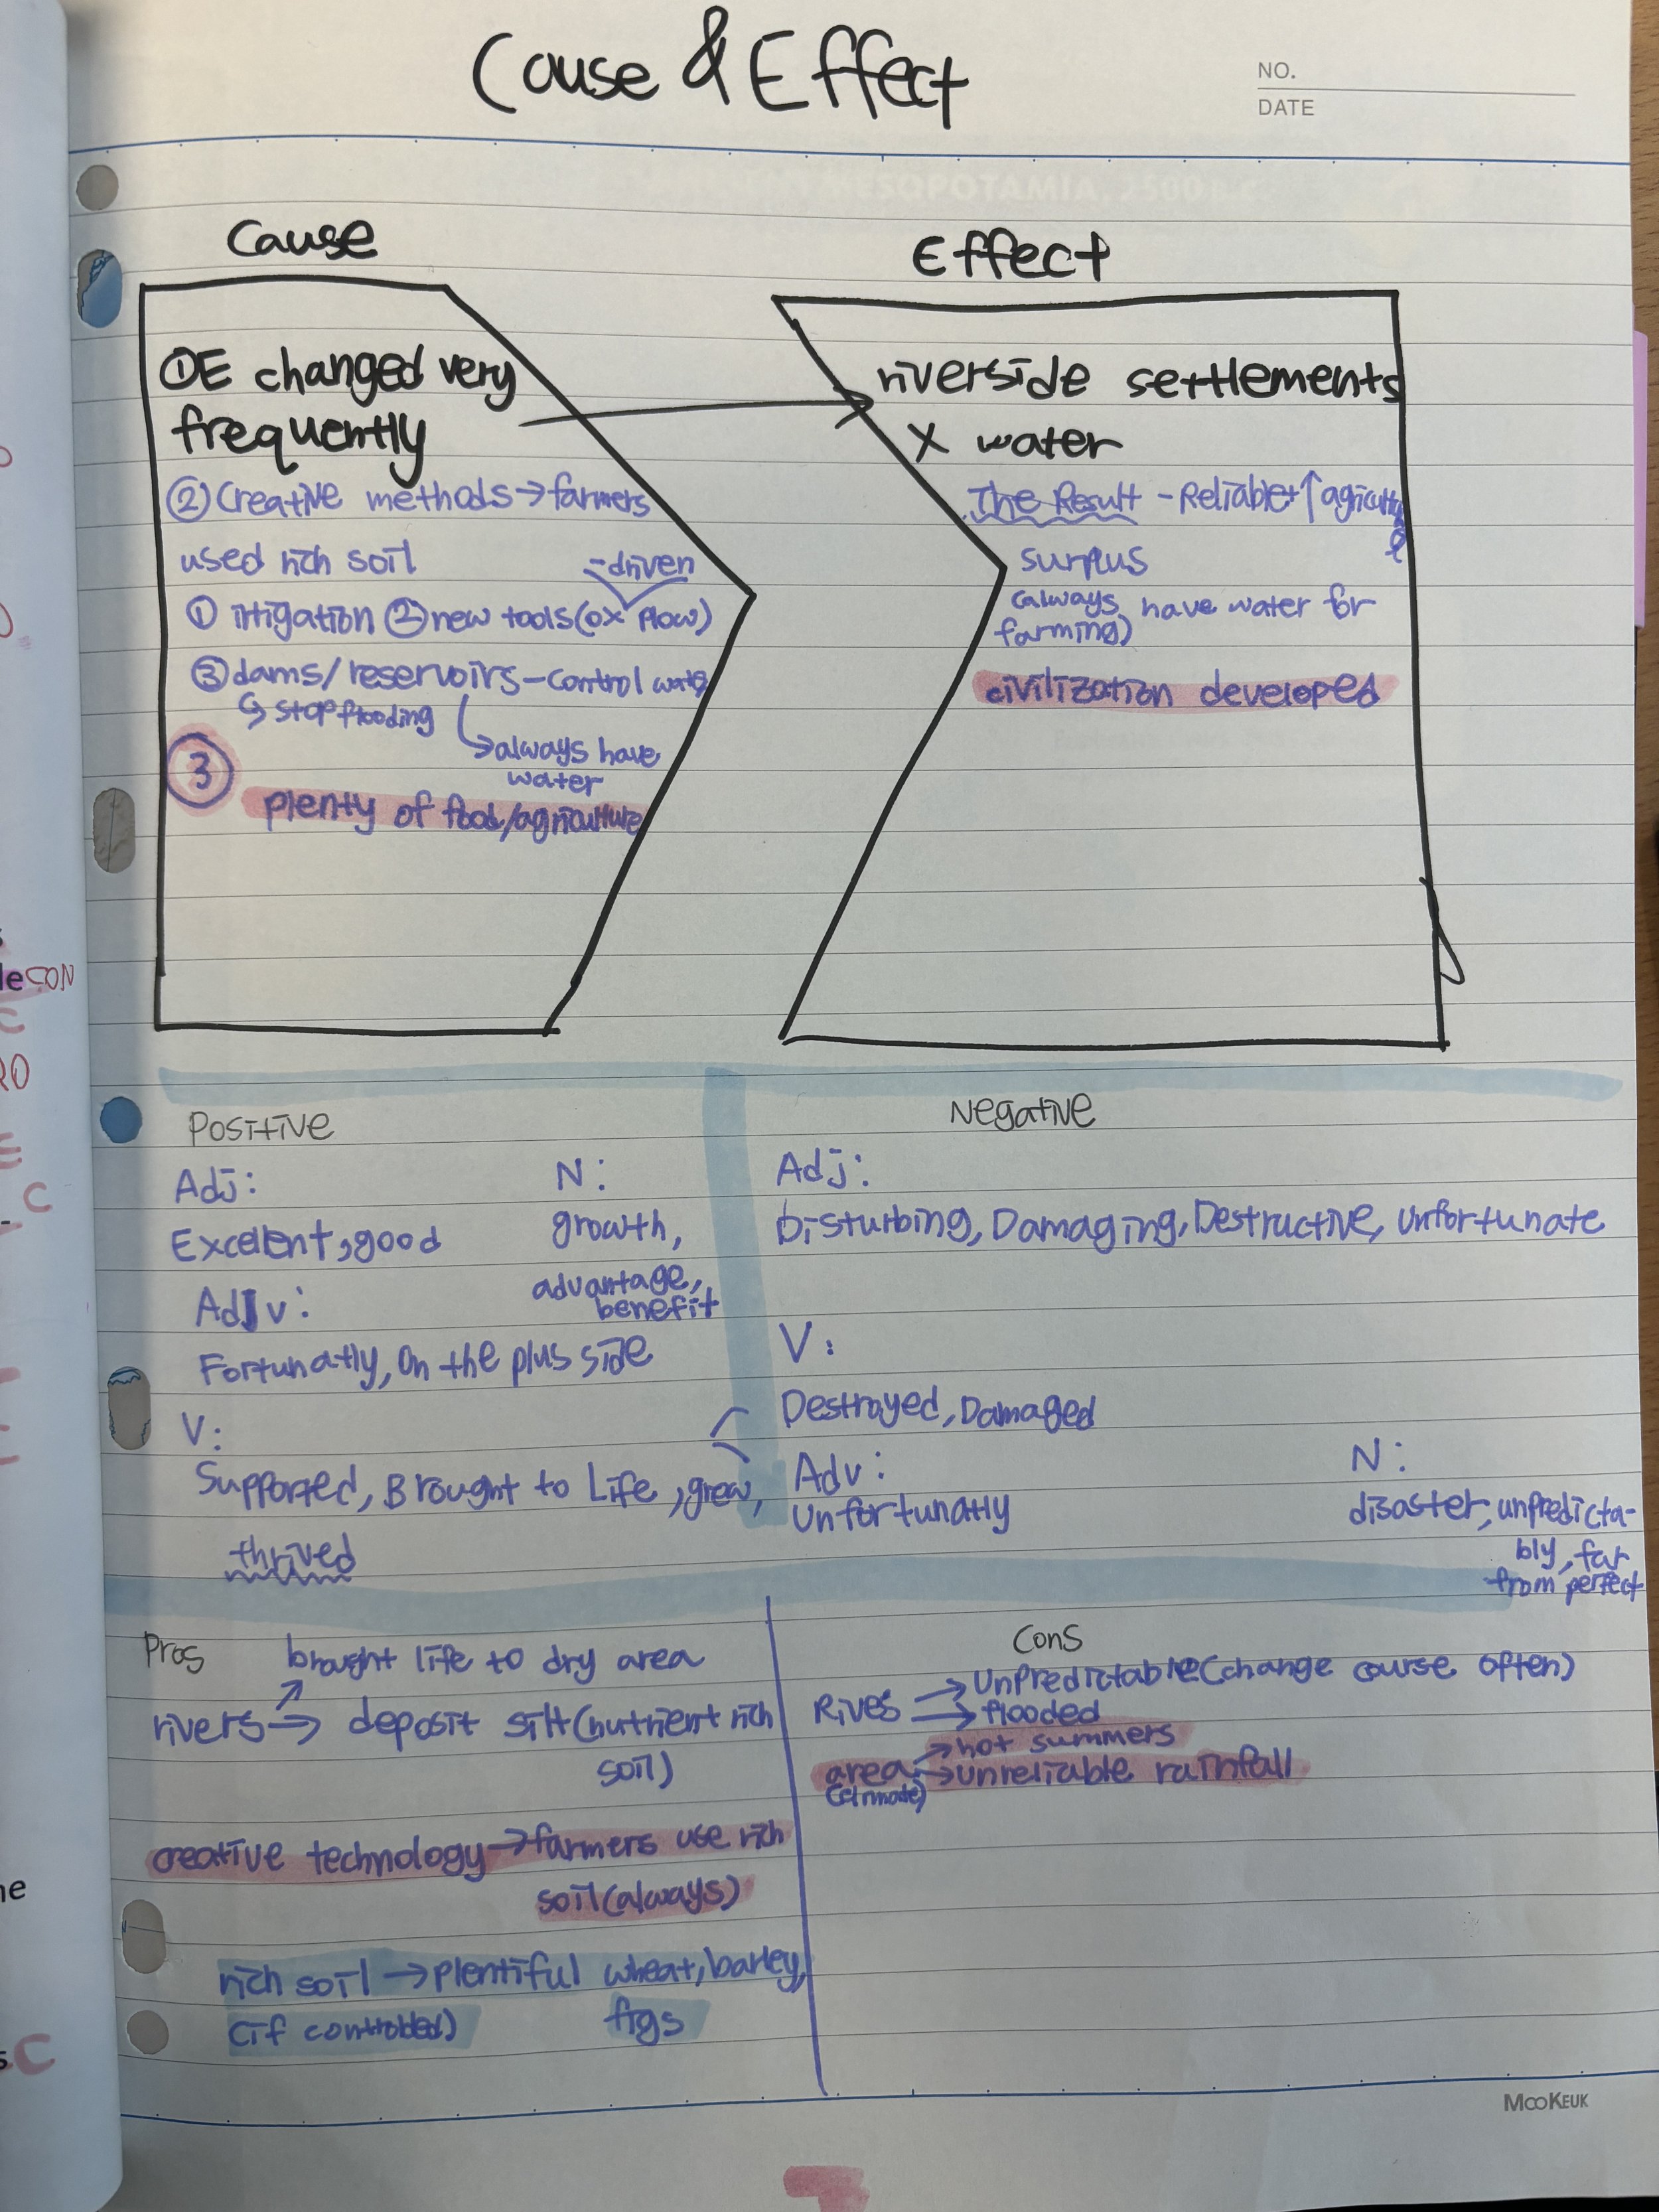 Cause & Effect
NO.
DATE
MESOPOTAMIA, 2500 B.C.
Cause
Effect
①E changed very
frequently
②Creative methods→farmers
used rich soil
-driven
① irrigation ②new tools(ox plow)
③dams/reservoirs-control water
↳stop flooding
↳always have
water
③
plenty of food/agriculture
riverside settlements
X water
The Result - Reliable+↑agricultu
surplus
(always have water for
farming)
civilization developed
Positive
Adj:
N:
Excellent, good
growth,
advantage,
benefit
Adv:
Fortunatly, On the plus side
V:
Supported, Brought to Life, grew,
thrived
Negative
Adj:
Disturbing, Damaging, Destructive, Unfortunate
V:
Destroyed, Damaged
Adv:
Unfortunatly
N:
disaster, unpredicta-
bly, far
from perfect
Pros
brought life to dry area
rivers→ deposit silt(nutrient rich
soil)
creative technology→farmers use rich
soil(always)
rich soil→plentiful wheat, barley,
(if controlled) figs
Cons
Rives → UnPredictable(change course often)
→ flooded
area →hot summers
→unreliable rainfall
(climate)
MOOKEUK
leCON
C
RO
E
C
ne
sC